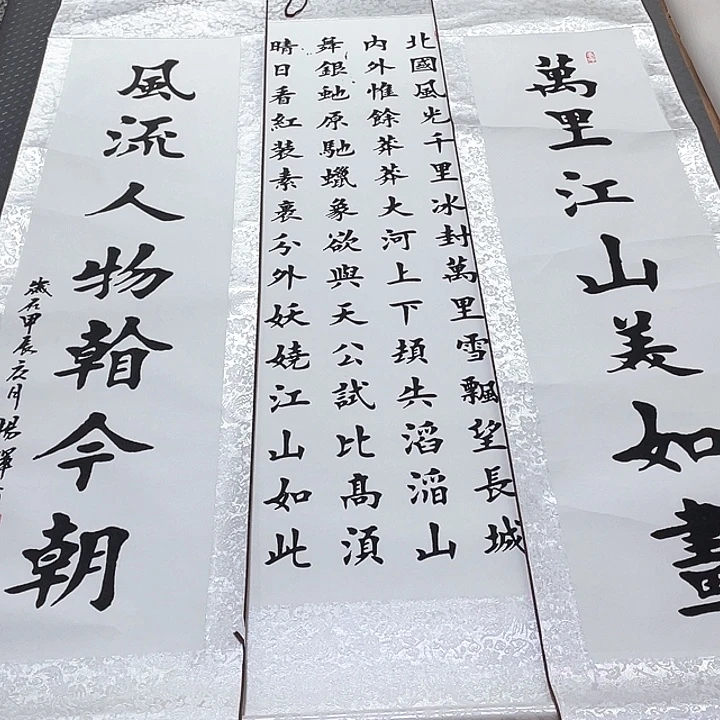 萬里江山美如畫
北國風光千里冰封萬里雪飄望長城
内外惟餘莽莽大河上下頓失滔滔山
舞銀虵原馳蠟象欲與天公試比高須
晴日看紅装素裹分外妖嬈江山如此
風流人物看今朝
歲在甲辰